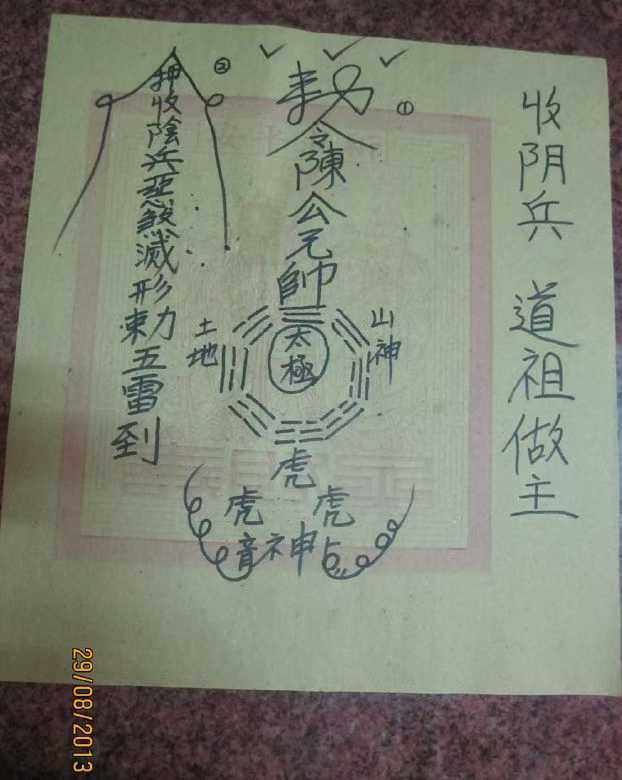 收阴兵 道祖做主
①
勅令陳公元帥
太極
山神
土地
虎
虎 虎
②
押收陰兵惡煞滅形
五雷到
29/08/2013